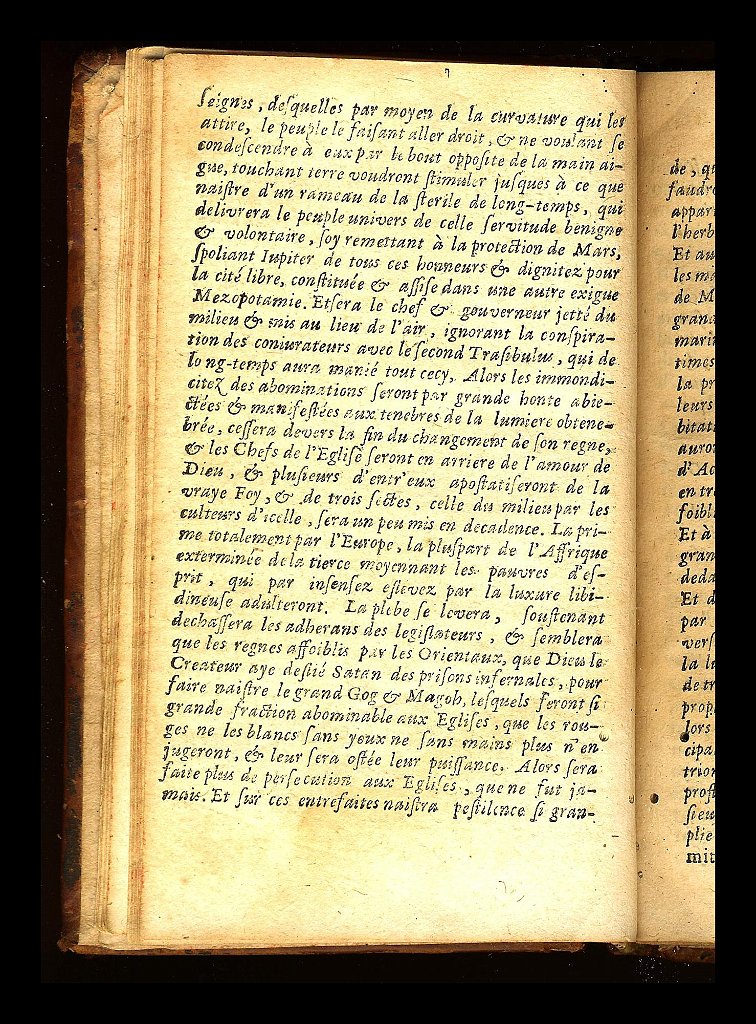 ſeignes, deſquelles par moyen de la curvature qui les
attire, le peuple le faiſant aller droit, & ne voulant ſe
condeſcendre à eux par le bout oppoſite de la main ai-
gue, touchant terre voudront ſtimuler juſques à ce que
naiſtre d'un rameau de la ſterile de long-temps, qui
delivrera le peuple univers de celle ſervitude benigne
& volontaire, ſoy remettant à la protection de Mars,
ſpoliant Iupiter de tous ces honneurs & dignitez pour
la cité libre, conſtituée & aſſiſe dans une autre exigue
Mezopotamie. Et ſera le chef & gouverneur jetté du
milieu & mis au lieu de l'air, ignorant la conſpira-
tion des coniurateurs avec le ſecond Traſibulus, qui de
long-temps aura manié tout cecy. Alors les immondi-
citez des abominations ſeront par grande honte abie-
ctées & manifeſtées aux tenebres de la lumiere obtene-
brée, ceſſera devers la fin du changement de ſon regne,
& les Chefs de l'Egliſe ſeront en arriere de l'amour de
Dieu, & pluſieurs d'entr'eux apoſtatiſeront de la
vraye Foy, & de trois ſectes, celle du milieu par les
culteurs d'icelle, ſera un peu mis en decadence. La pri-
me totalement par l'Europe, la pluſpart de l'Affrique
exterminée de la tierce moyennant les pauvres d'eſ-
prit, qui par inſenſez eſlevez par la luxure libi-
dineuſe adulteront. La plebe ſe levera, ſouſtenant
dechaſſera les adherans des legiſlateurs, & ſemblera
que les regnes affoiblis par les Orientaux, que Dieu le
Createur aye deſlié Satan des priſons infernales, pour
faire naiſtre le grand Gog & Magoh, leſquels feront ſi
grande fraction abominable aux Egliſes, que les rou-
ges ne les blancs ſans yeux ne ſans mains plus n'en
jugeront, & leur ſera oſtée leur puiſſance. Alors ſera
faite plus de perſecution aux Egliſes, que ne fut ja-
mais. Et ſur ces entrefaites naiſtra peſtilence ſi gran-
de, q
faudr
appar
l'herb
Et au
les ma
de M
gran
mari
times
la pr
leurs
bitat
auro
d'Ac
en tr
foibl
Et à
gran
deda
Et d
par
verſ
la l
de tr
prop
lors
cipa
trio
prof
ſieu
plie
mit